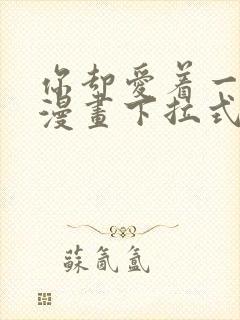 你却愛着一
漫畫下拉式
蘇氤氳